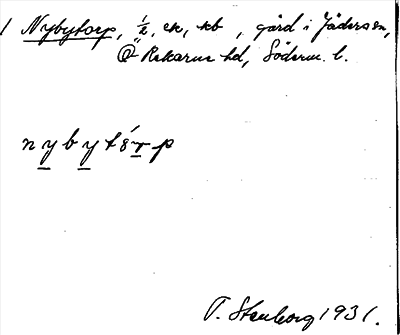 1 Nybytorp, 1/2, ek, kb, gård i Jäders sn,
Ö Rekarne hd, Söderm. l.
nybytórp
T. Stenborg 1931.